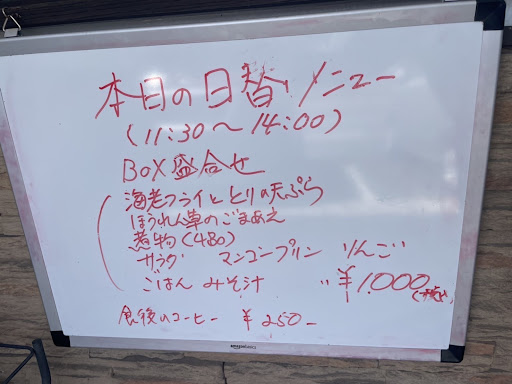 本日の日替メニュー
(11:30〜14:00)
BOX盛合せ
海老フライととりの天ぷら
ほうれん草のごまあえ
煮物(480)
サラダ マンゴープリン りんご
ごはん みそ汁 ¥1.000
食後のコーヒー ¥250-